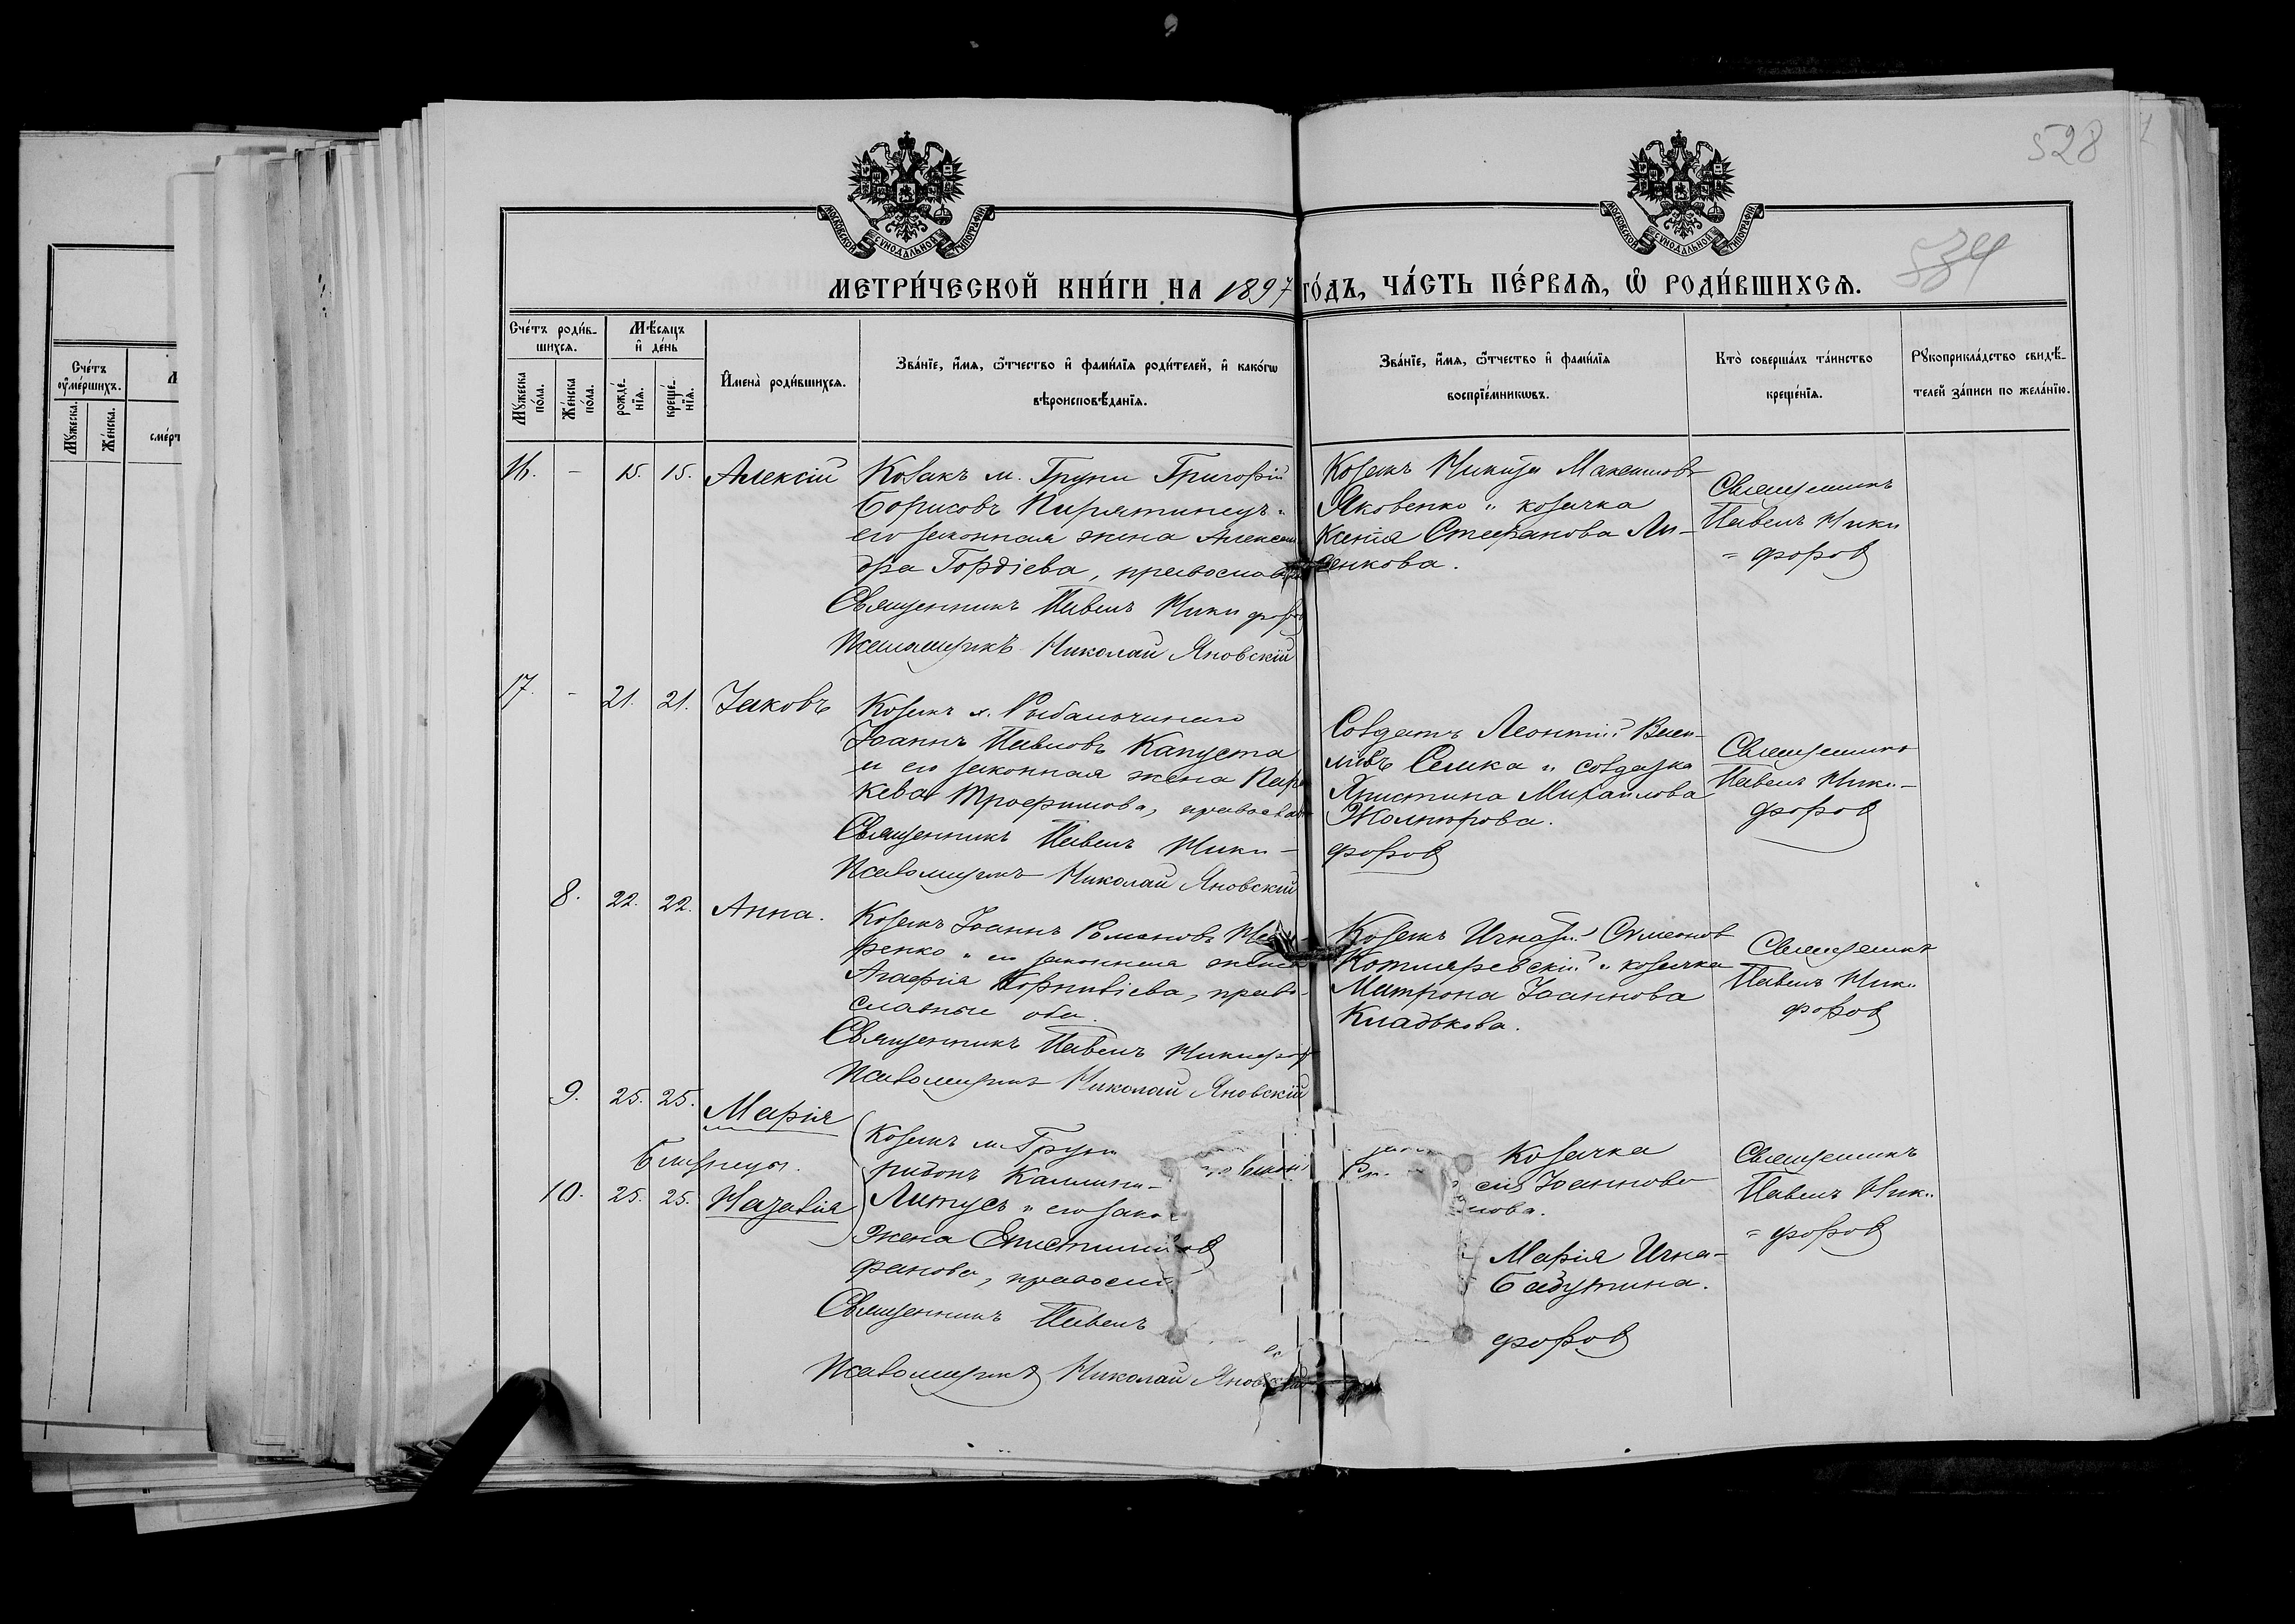 528
534
МОСКОВСКОЙ СѴНОДАЛЬНОЙ ТИПОГРАФІИ
МОСКОВСКОЙ СѴНОДАЛЬНОЙ ТИПОГРАФІИ
МЕТРИ́ЧЕСКОЙ КНИ́ГИ НА 1897 ГО́ДЪ, ЧА́СТЬ ПЕ́РВАѦ, Ѡ РОДИ́ВШИХСѦ.
Сче́тъ
оумершихъ.
Мꙋжеска.
Же́нска.
сме́рт
Сче́тъ роди́в-
шихсѧ.
Мꙋжеска по́ла.
Же́нска по́ла.
Мѣ́сѧцъ
и҆ де́нь
рожде́-
нїѧ.
креще́-
нїѧ.
И҆мена̀ роди́вшихсѧ.
Зва́нїе, и҆́мѧ, ѻ҆́тчество и҆ фами́лїѧ роди́телей, и҆ како́гѡ
вѣроисповѣ́данїѧ.
Зва́нїе, и҆́мѧ, ѻ҆́тчество и҆ фами́лїѧ
воспрїе́мникѡвъ.
Кто̀ соверша́лъ та́инство
креще́нїѧ.
Рꙋкоприкла́дство свидѣ́-
телей за́писи по жела́нїю.
16. - 15. 15. Алексій
Козакъ м. Груни Григорій
Борисовъ Пирятинецъ и
его законная жена Алексан
дра Гордіева, православн
Священникъ Павелъ Никифоров
Псаломщикъ Николай Яновскій
Козакъ Никита Максимовъ
Яковенко и козачка
Ксенія Стефанова Ли-
сенкова.
Священникъ
Павелъ Ники
= форов
17. - 21. 21. Іаковъ
Козакъ х. Рыбальчинаго
Іоаннъ Павловъ Капуста
и его законная жена Пара
кева Трофимова, православ
Священникъ Павелъ Ники-
форов
Псаломщикъ Николай Яновскій
Солдатъ Леонтій Васи-
ліевъ Семка и солдатка
Христина Михаилова
Священникъ
Павелъ Ники-
форов
8. 22. 22. Анна.
Козакъ Іоаннъ Романовъ
ренко и его законная жена
Агафія Корниліева, право-
славные оба.
Священникъ Павелъ Никифоров
Псаломщикъ Николай Яновскій
Козакъ Игнатій Симеонов
Котляревскій и козачка
Матрона Іоаннова
Кладькова.
Священникъ
Павелъ Ники
форов
9. 25. 25. Марія
Близнецы.
10. 25. 25. Назавія
Козакъ м. Груни
ридонъ Каллини-
Литусъ и его зако
жена Епистимія
фанова, правосл
Священникъ Павелъ
Псаломщикъ Николай Яновскій
козачка
сія Іоаннова
нова.
Марія Игна-
Бабутина.
форов
Священникъ
Павелъ Ники
= форов